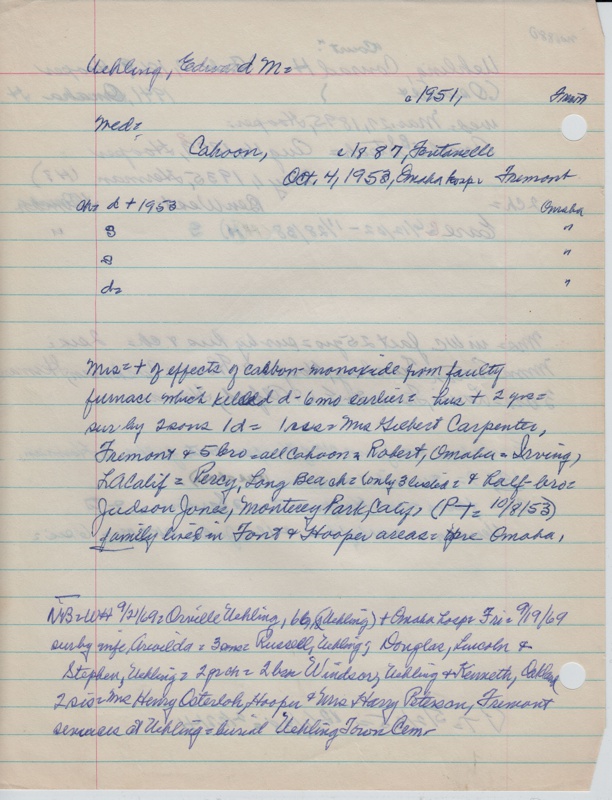 Uehling, Edward M=
c1951, Fremont
med=
Cahoon, c1887, Fontanelle
Oct. 4, 1953, Omaha hosp= Fremont
ch= d + 1953 Omaha
s "
s
d= "
Mrs= + of effects of carbon-monoxide from faulty
furnace which killed d-6mo earlier= hus + 2 yrs=
sur by 2sons 1d= 1sis=Mrs Gilbert Carpenter,
Fremont & 5 bro=all Cahoon= Robert, Omaha= Irving,
LACalif= Percy, Long Beach= (only 3 listed= & half-bro=
Judson Jones, Monterey Park, Calif, (PT= 10/8/53)
family lived in Font & Hooper areas= pre Omaha,
NB=WH 9/21/69=Orville Uehling, 66, (Uehling) + Omaha hosp= Fri= 9/19/69
sur by wife, Arvilda= 3sons= Russell, Uehling; Douglas, Lincoln &
Stephen, Uehling= 2grch= 2bro Windsor, Uehling & Kenneth, Oakland
2sis=Mrs Henry Osterloh, Hooper & Mrs Harry Peterson, Fremont
services at Uehling=burial Uehling Town Cem-